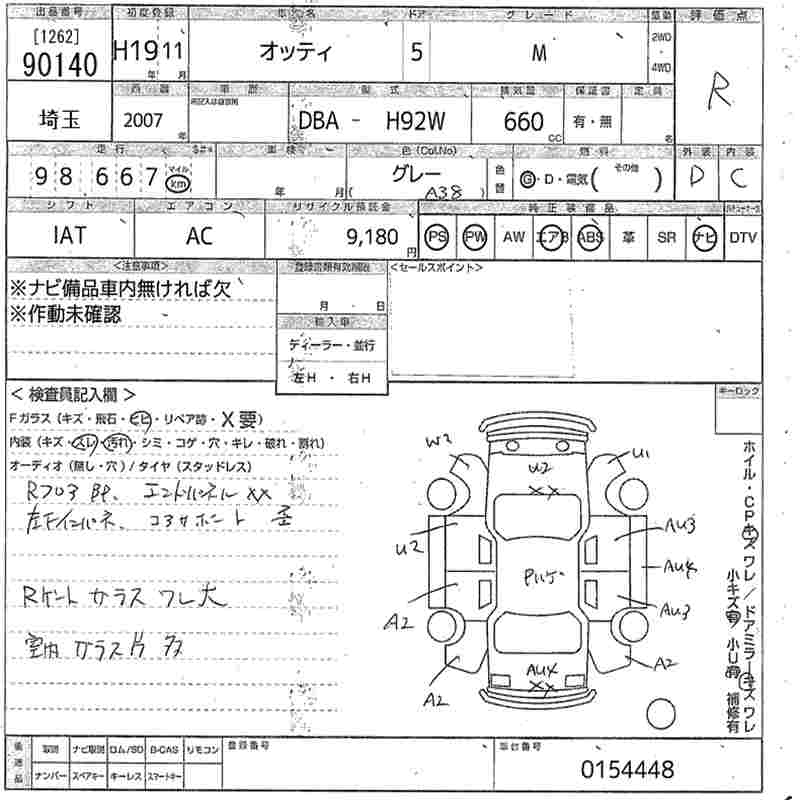 出品番号 初度登録 車名 ドア グレード 駆動 評価点
[1262]
90140 H19 11 年 月 オッティ 5 M 2WD ・ 4WD R
西暦 車歴 型式 排気量 保証書 定員
埼玉 2007 年 DBA - H92W 660 CC 有・無 名
走行 車検 色(Col.No) 燃料 外装 内装
98,667 マイル km 年 月 グレー ( A38 ) 色替 G・D・電気( その他 ) D C
シフト エアコン リサイクル預託金 純正装備品
IAT AC 9,180 円 PS PW AW エアB ABS 革 SR ナビ DTV
<注意事項> 登録書類有効期限 <セールスポイント>
※ナビ備品車内無ければ欠
※作動未確認
月 ・ 日
輸入車
ディーラー・並行
左H ・ 右H
< 検査員記入欄 > キーロック
Fガラス (キズ・飛石・ヒビ・リペア跡・X要)
内装 (キズ・スレ・汚れ・シミ・コゲ・穴・キレ・破れ・割れ)
オーディオ (無し・穴) / タイヤ (スタッドレス)
Rフロア BP、エンドパネル XX
左下インパネ、コアサポート 歪
Rクォート ガラス ワレ大
室内 ガラス片 多
W2 U2 XX U1
U2 AU3
Pルーフ AU4
A2 AU3
A2 AU4 XX A2
ホイル・CPキズワレ/ドアミラーキズワレ
小キズ有 小U有 補修有
後送品 取説 ナビ取説 ロム/SD B-CAS リモコン 登録番号 車台番号
ナンバー スペアキー キーレス スマートキー 0154448